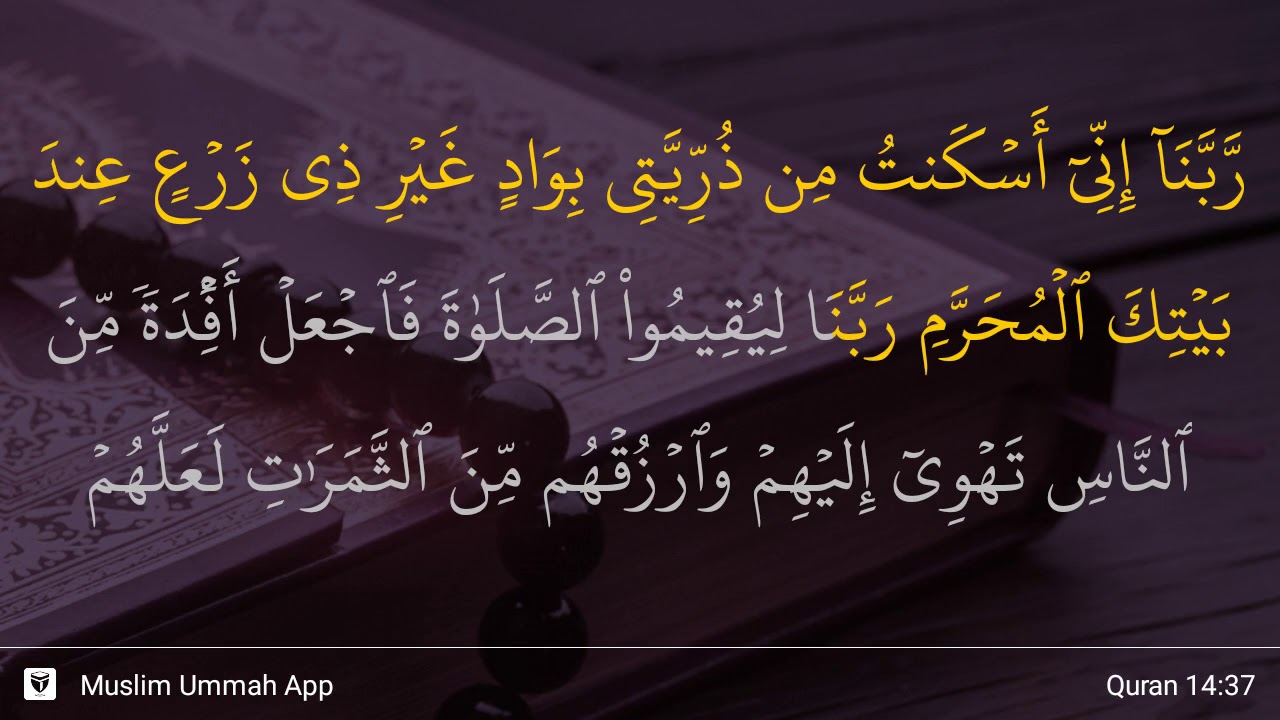 رَّبَّنَآ إِنِّىٓ أَسۡكَنتُ مِن ذُرِّيَّتِى بِوَادٍ غَيۡرِ ذِى زَرۡعٍ عِندَ
بَيۡتِكَ ٱلۡمُحَرَّمِ رَبَّنَا لِيُقِيمُواْ ٱلصَّلَوٰةَ فَٱجۡعَلۡ أَفۡـِٔدَةً مِّنَ
ٱلنَّاسِ تَهۡوِىٓ إِلَيۡهِمۡ وَٱرۡزُقۡهُم مِّنَ ٱلثَّمَرَٰتِ لَعَلَّهُمۡ
Muslim Ummah App
Quran 14:37